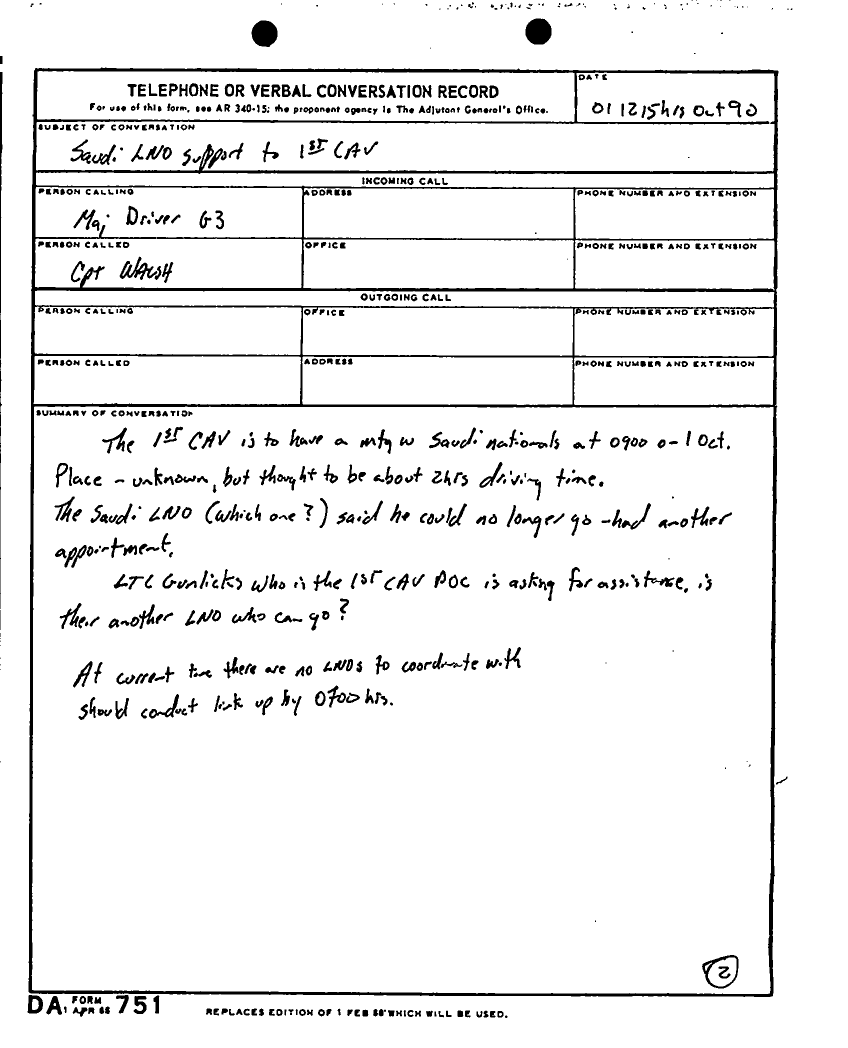 TELEPHONE OR VERBAL CONVERSATION RECORD
For use of this form, see AR 340-15; the proponent agency is The Adjutant General's Office.
DATE
01 1215hrs Oct 90
SUBJECT OF CONVERSATION
Saudi LNO support to 1ST CAV
INCOMING CALL
PERSON CALLING
ADDRESS
PHONE NUMBER AND EXTENSION
Maj Driver G3
PERSON CALLED
OFFICE
PHONE NUMBER AND EXTENSION
Cpt WALSH
OUTGOING CALL
PERSON CALLING
OFFICE
PHONE NUMBER AND EXTENSION
PERSON CALLED
ADDRESS
PHONE NUMBER AND EXTENSION
SUMMARY OF CONVERSATION
The 1ST CAV is to have a mtg w Saudi nationals at 0900 on 1 Oct.
Place - unknown, but thought to be about 2hrs driving time.
The Saudi LNO (which one?) said he could no longer go - had another
appointment.
LTC Gunlicks who is the 1ST CAV POC is asking for assistance, is
their another LNO who can go?
At current time there are no LNOs to coordinate with
should conduct link up by 0700 hrs.
2
DA FORM 751
1 APR 66
REPLACES EDITION OF 1 FEB 58 WHICH WILL BE USED.